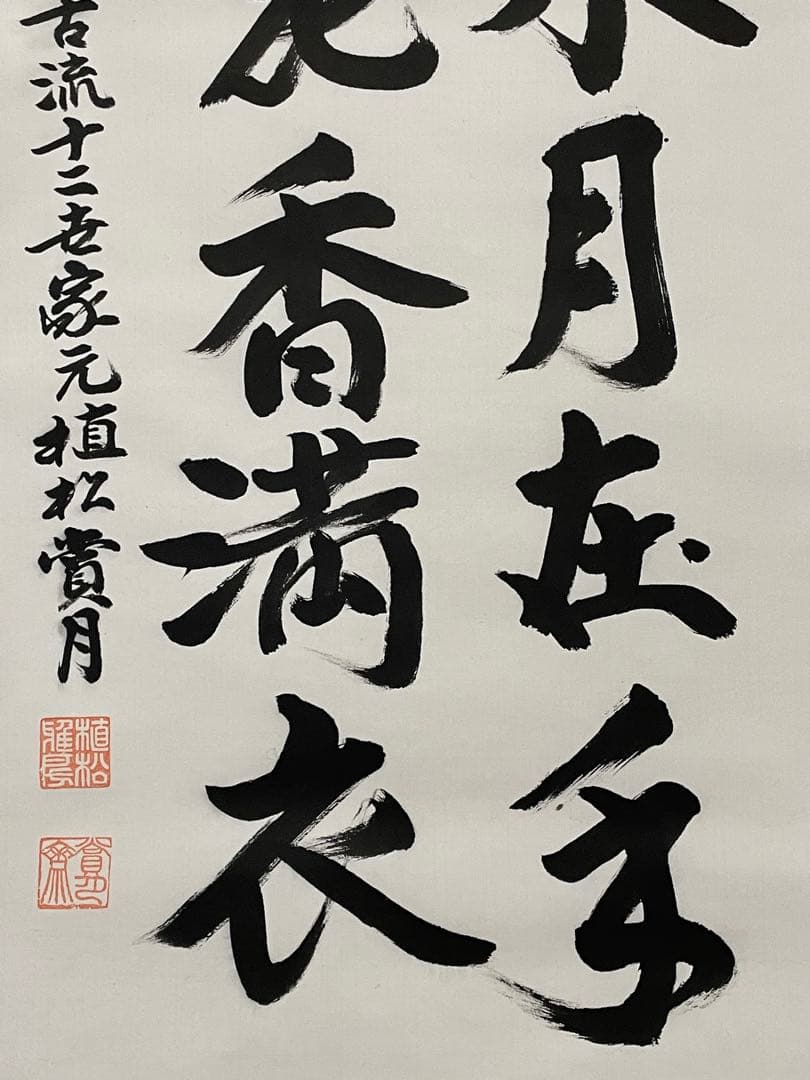 水月在手
花香満衣
古流十二世家元植松賞月
植松雅房
賞月齋